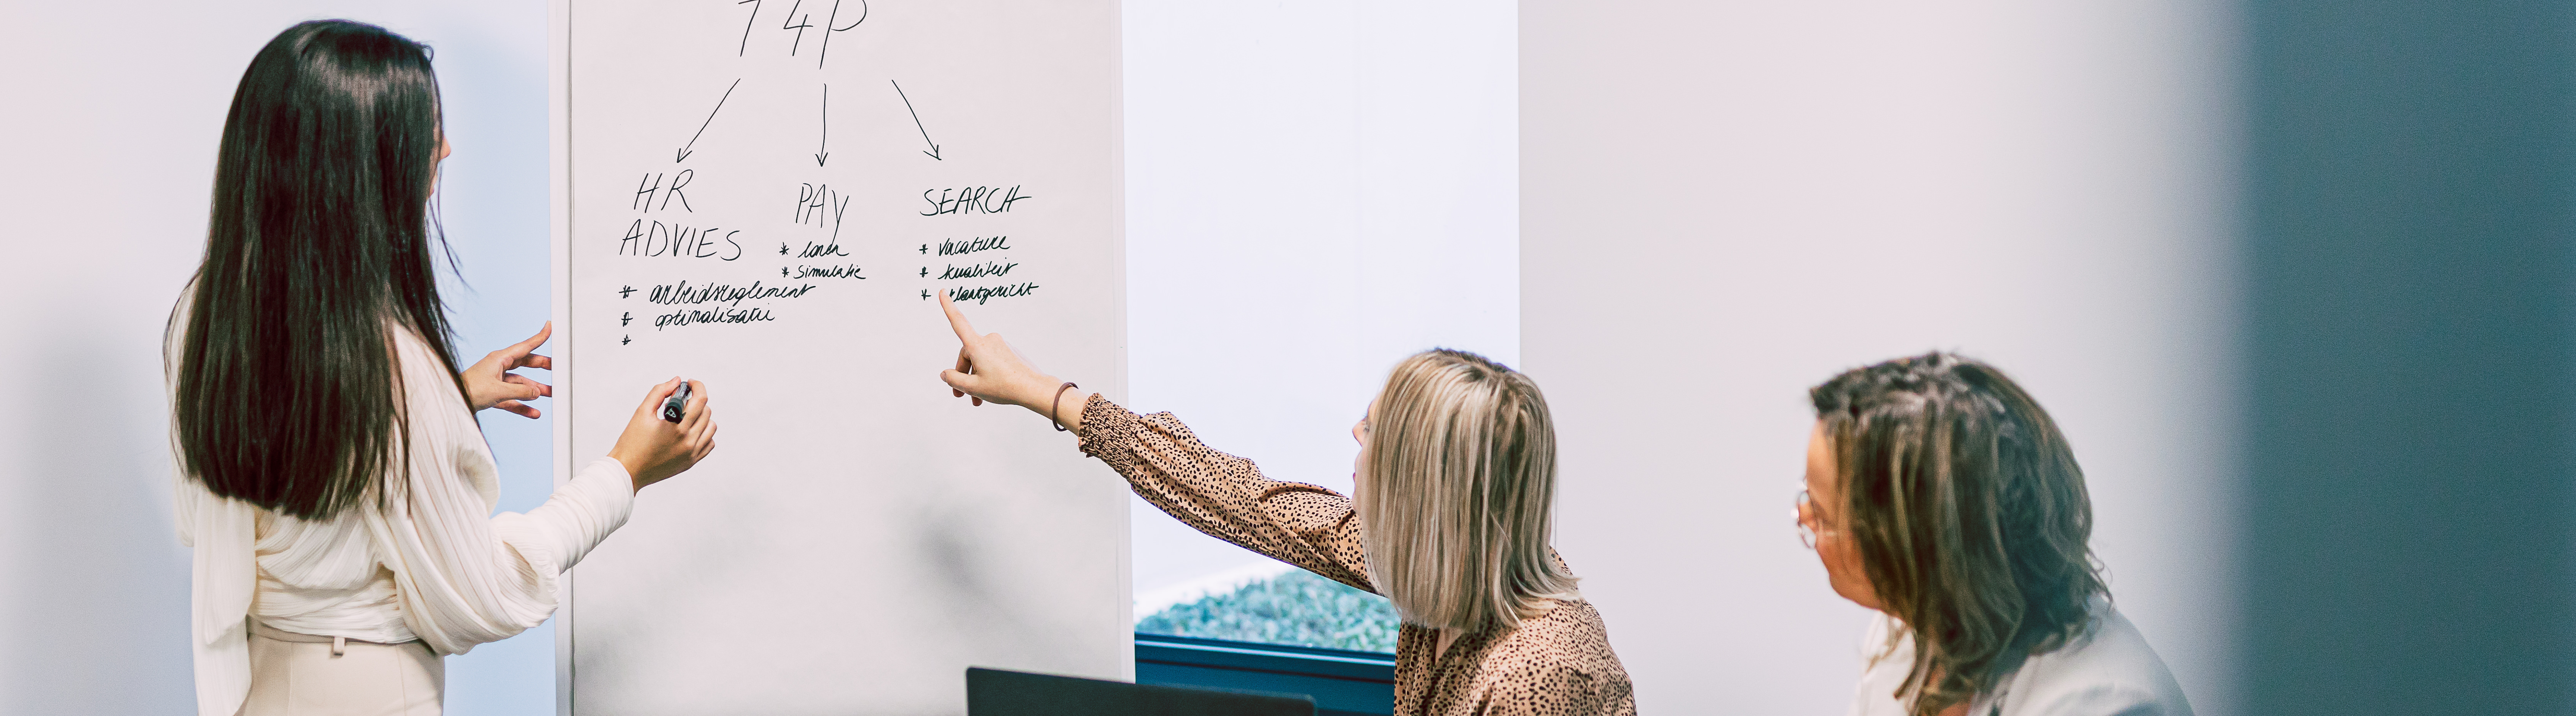 T4P
HR
ADVIES
* arbeidsreglement
* optimalisatie
*
PAY
* lonen
* simulatie
SEARCH
* vacature
* kwaliteit
* klantgericht